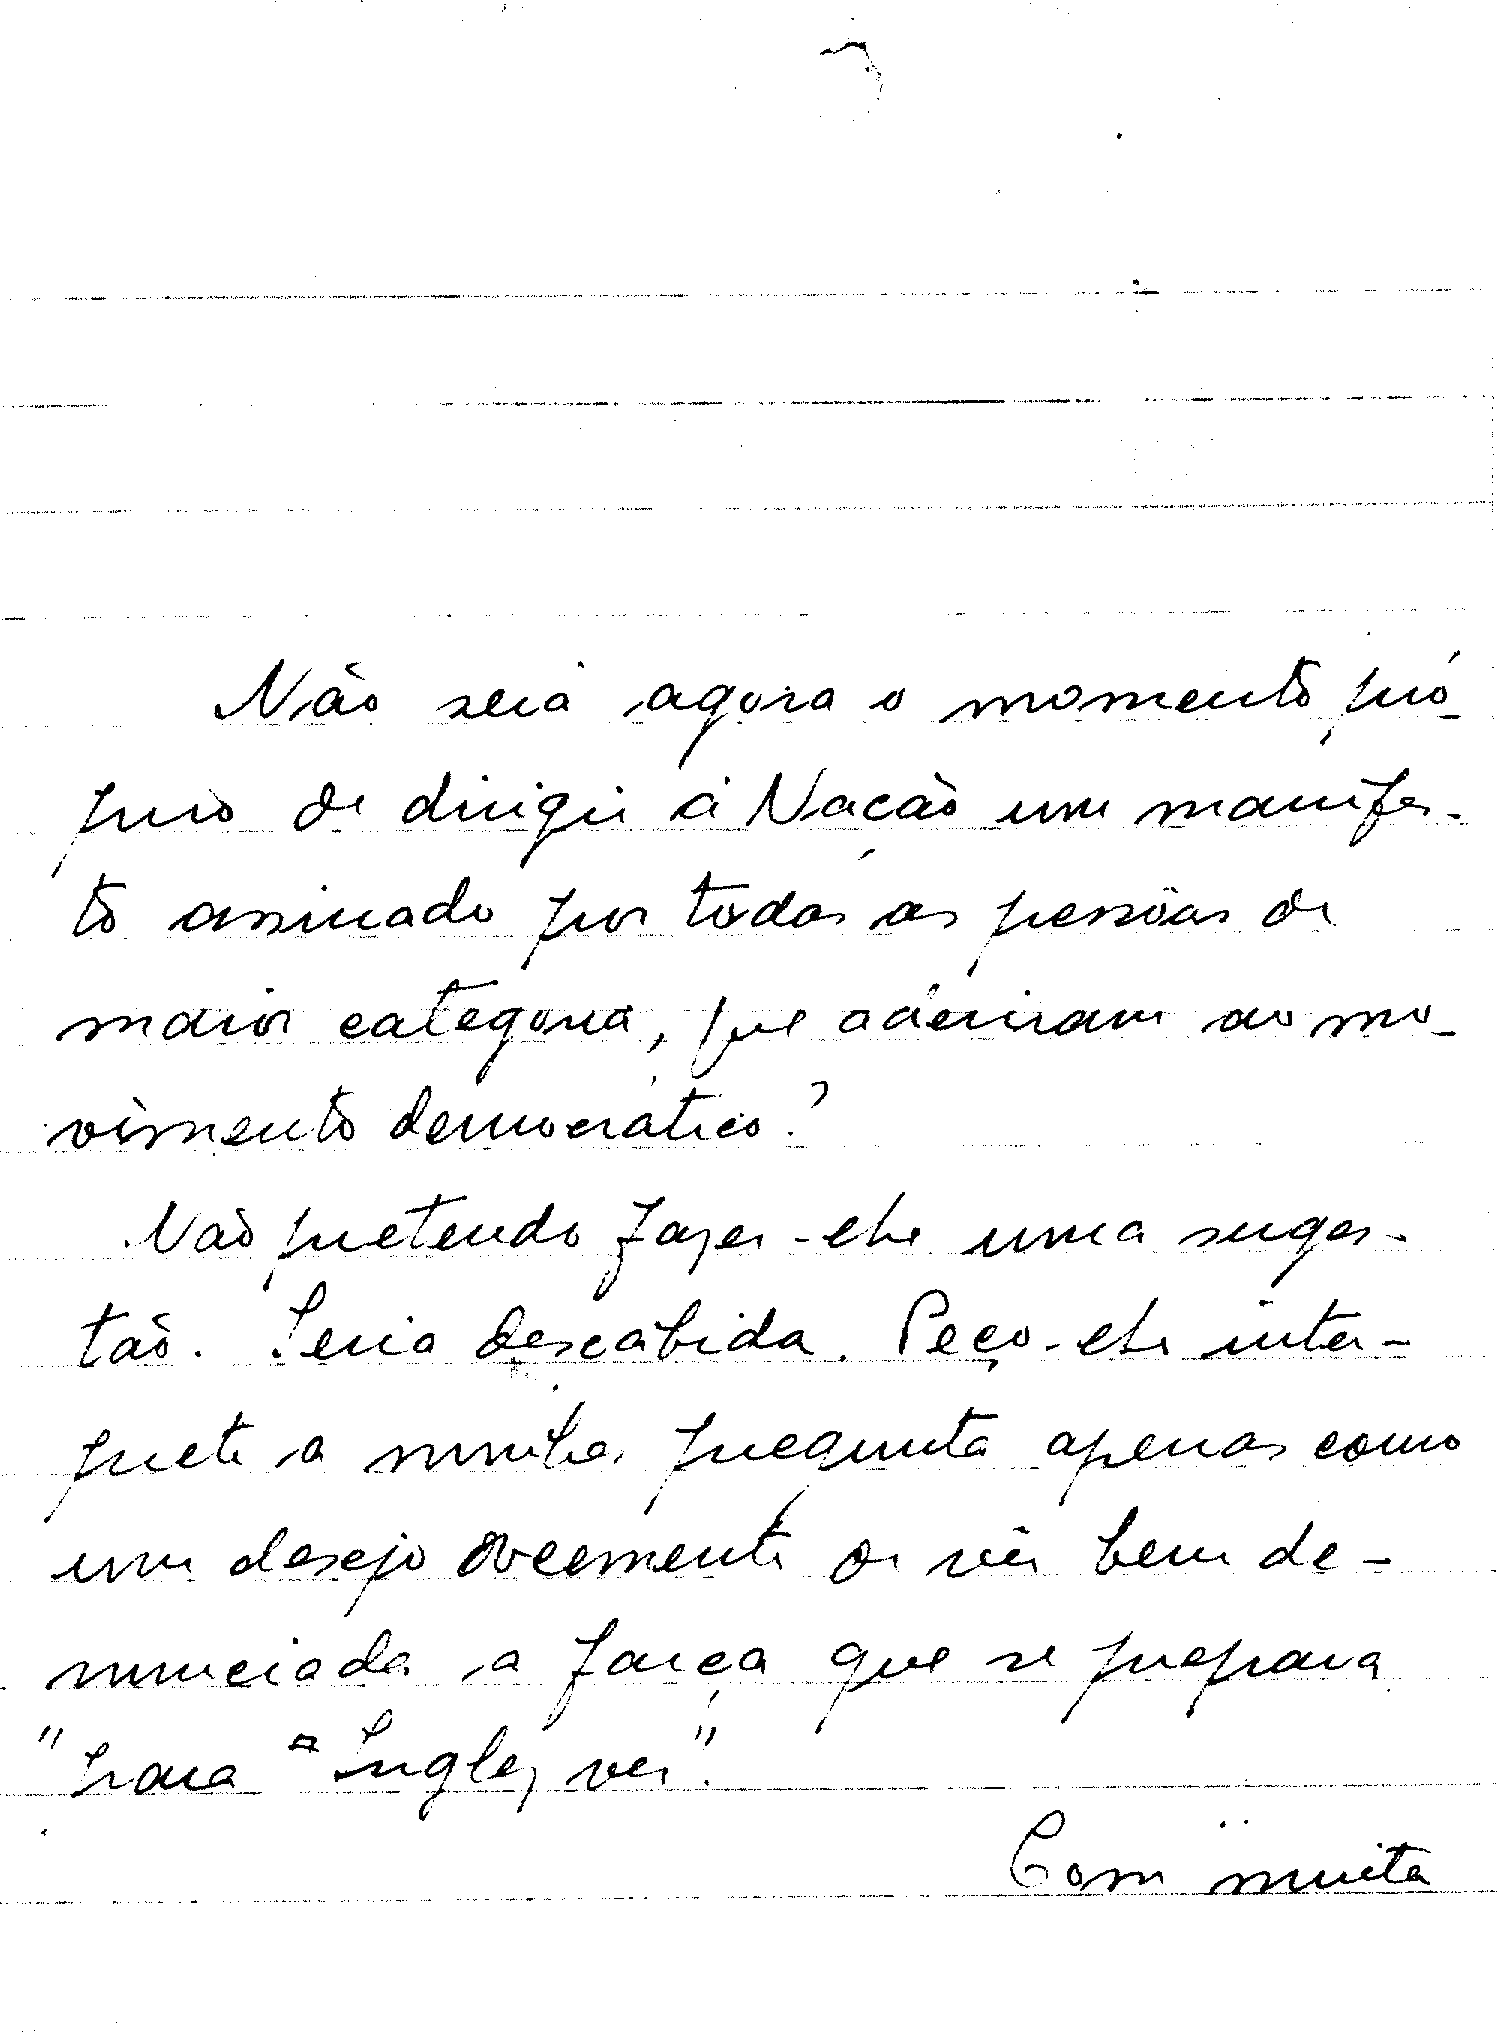 Não será agora o momento pró-
prio de dirigir á Nação um manifes-
to assinado por todas as pessôas de
maior categoria, que aderiram ao mo-
vimento democrático?
Não pretendo fazer-lhe uma suges-
tão. Seria descabida. Peço-lhe inter-
prete a minha pregunta apenas como
um desejo veemente de vêr bem de-
nunciada a farça que se prepara
"para Inglez ver".
Com muita